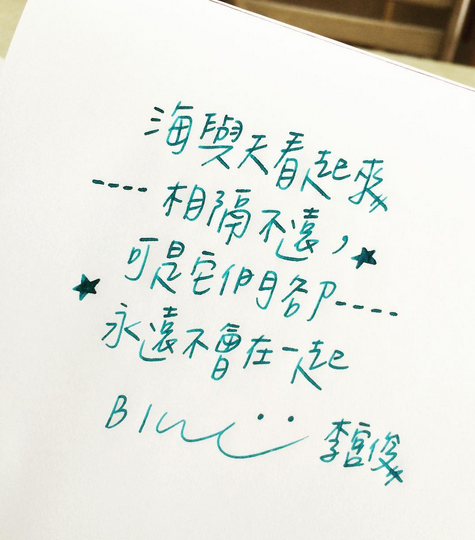 海與天看起來
---- 相隔不遠，★
★ 可是它們卻----
永遠不會在一起
Blue 李宮俊